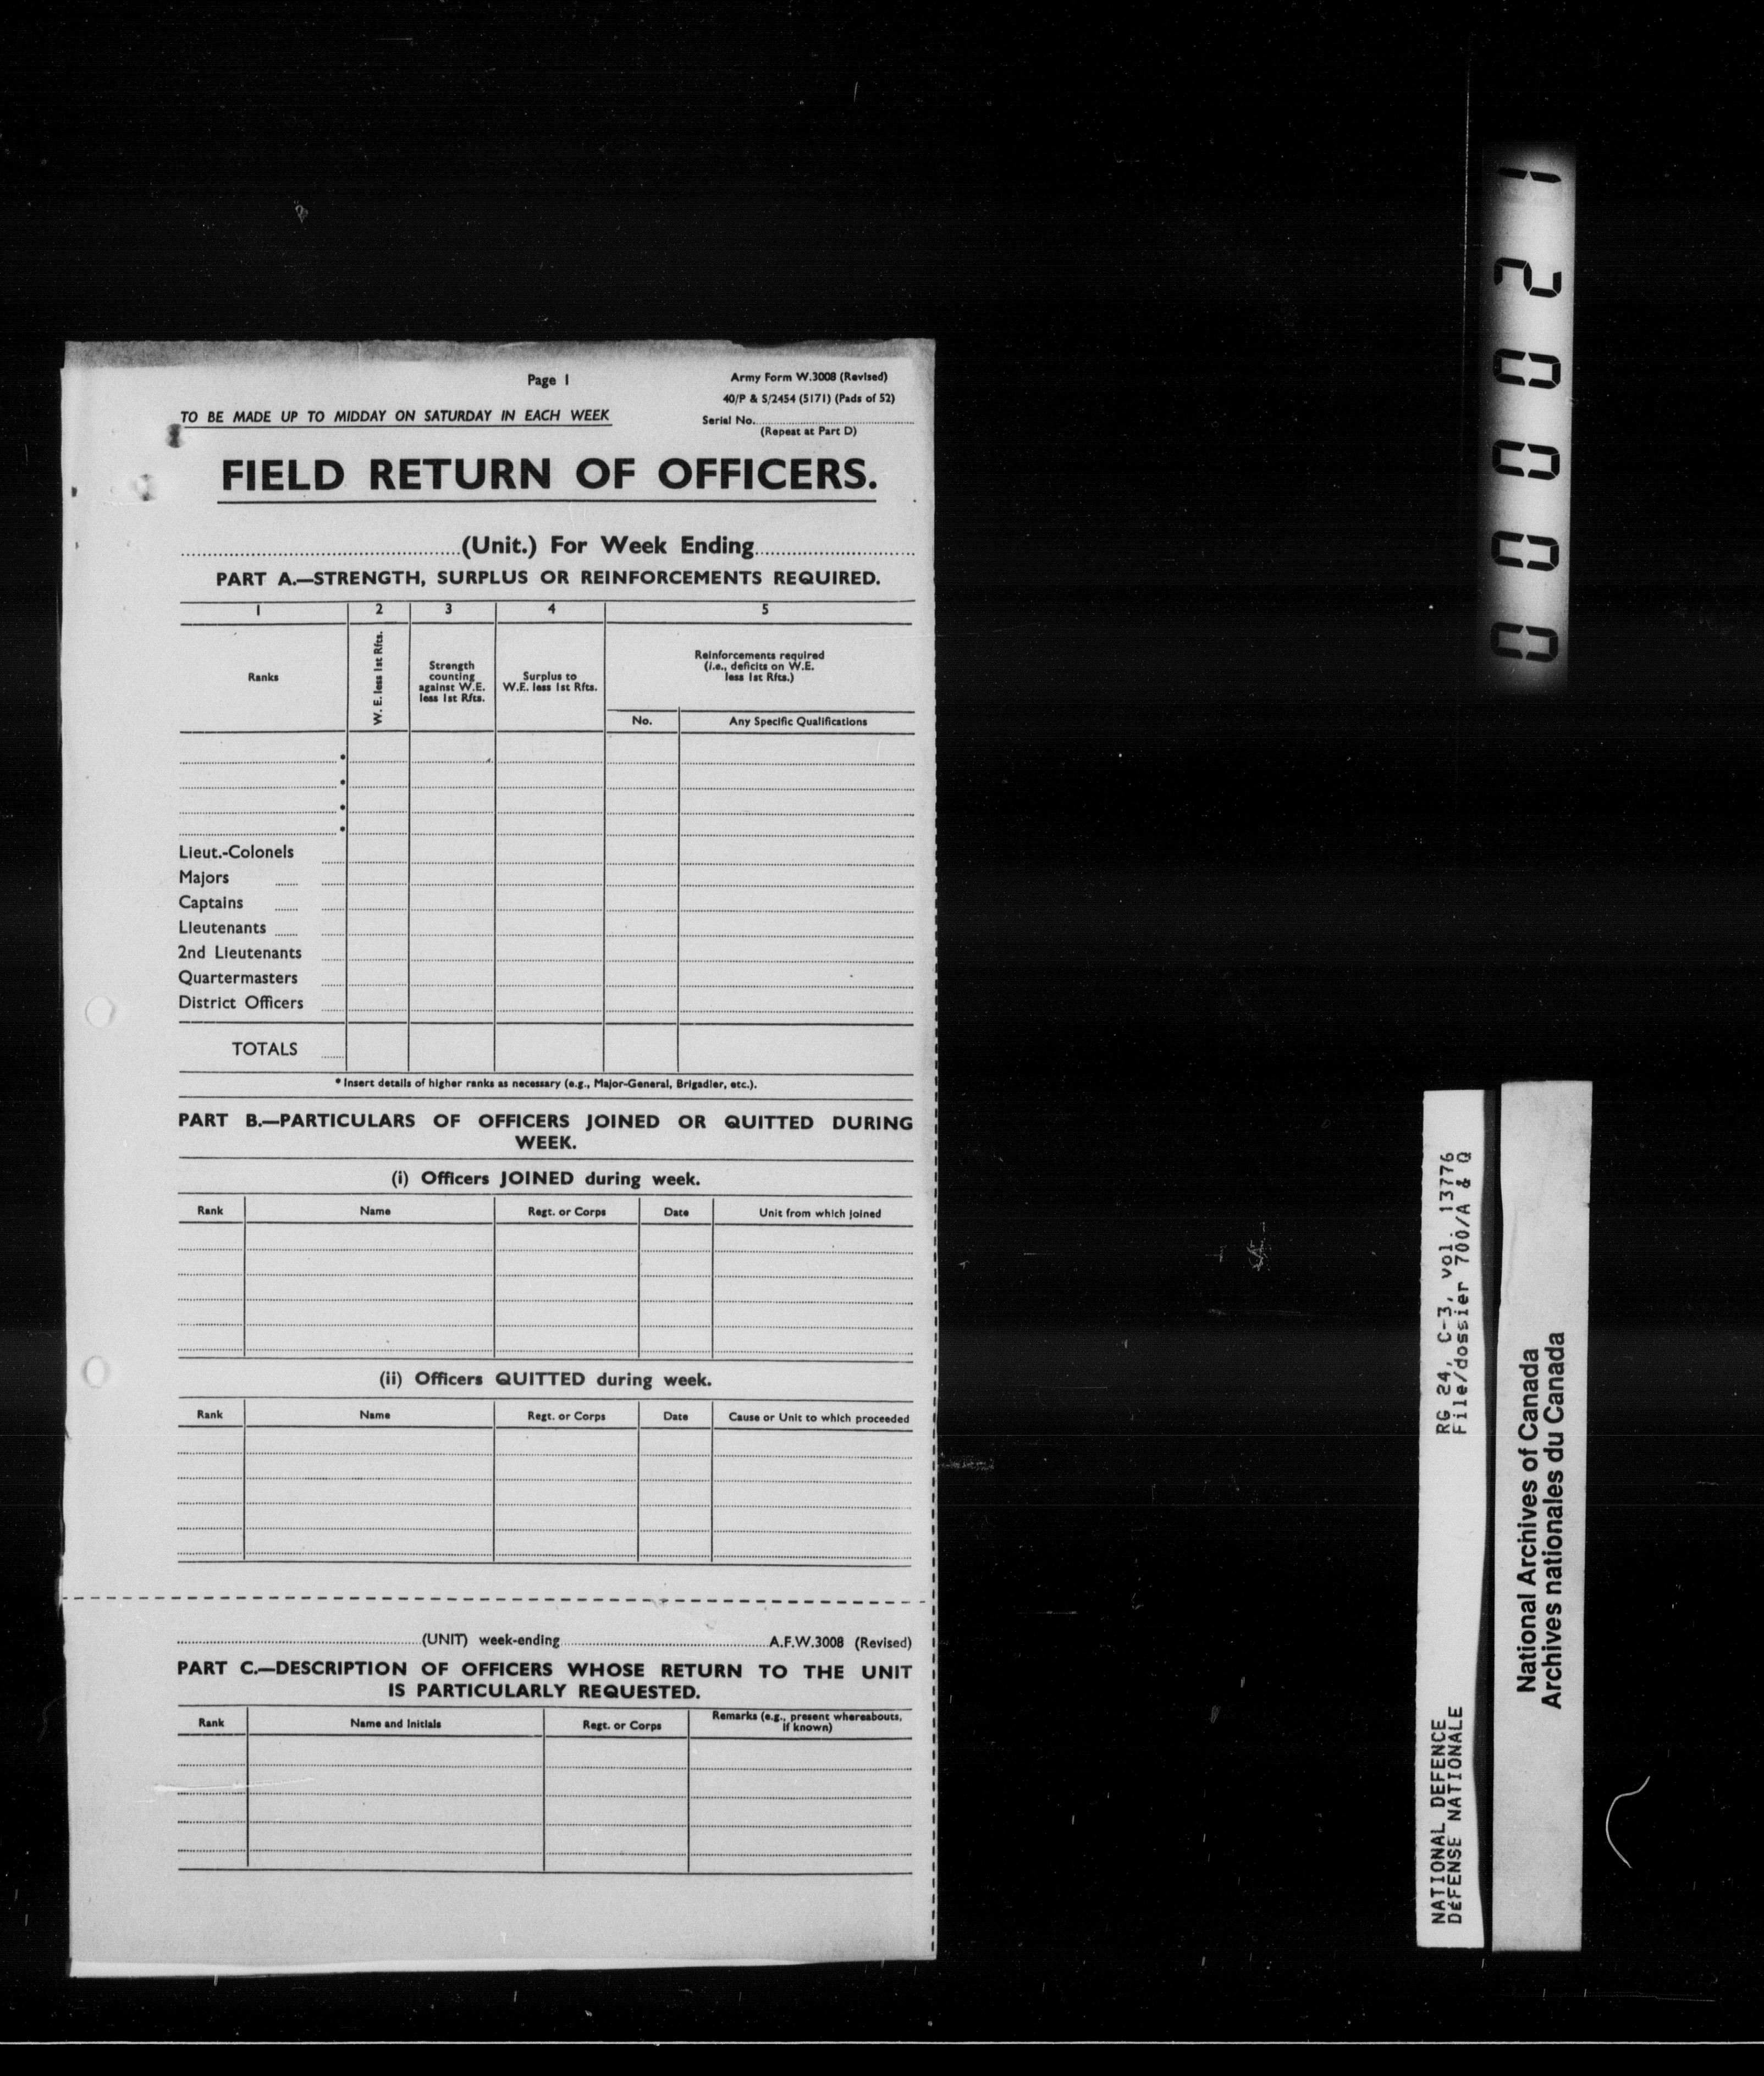 Page 1
Army Form W.3008 (Revised)
40/P & S/2454 (5171) (Pads of 52)
TO BE MADE UP TO MIDDAY ON SATURDAY IN EACH WEEK
Serial No.
(Repeat at Part D)
FIELD RETURN OF OFFICERS.
(Unit.) For Week Ending
PART A.—STRENGTH, SURPLUS OR REINFORCEMENTS REQUIRED.
1 2 3 4 5
Ranks
W. E. less 1st Rfts.
Strength
counting
against W.E.
less 1st Rfts.
Surplus to
W.E. less 1st Rfts.
Reinforcements required
(i.e., deficits on W.E.
less 1st Rfts.)
No.
Any Specific Qualifications
*
*
*
*
Lieut.-Colonels
Majors
Captains
Lieutenants
2nd Lieutenants
Quartermasters
District Officers
TOTALS
* Insert details of higher ranks as necessary (e.g., Major-General, Brigadier, etc.).
PART B.—PARTICULARS OF OFFICERS JOINED OR QUITTED DURING
WEEK.
(i) Officers JOINED during week.
Rank Name Regt. or Corps Date Unit from which joined
(ii) Officers QUITTED during week.
Rank Name Regt. or Corps Date Cause or Unit to which proceeded
(UNIT) week-ending A.F.W.3008 (Revised)
PART C.—DESCRIPTION OF OFFICERS WHOSE RETURN TO THE UNIT
IS PARTICULARLY REQUESTED.
Rank Name and Initials Regt. or Corps
Remarks (e.g., present whereabouts,
if known)
000021
NATIONAL DEFENCE
DéFENSE NATIONALE
RG 24, C-3, vol. 13776
File/dossier 700/A & Q
National Archives of Canada
Archives nationales du Canada